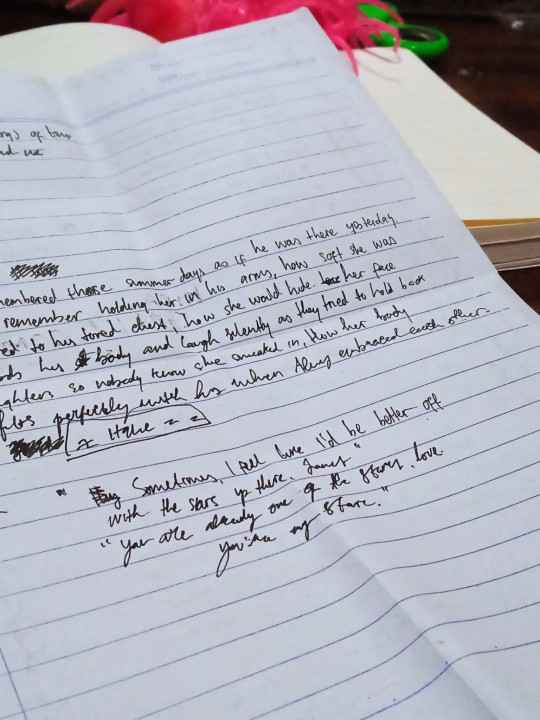 of
membered those summer days as if he was there yesterday.
remember holding her in his arms, how soft she was
ed to his toned chest, how she would hide her face
his body and laugh silently as they tried to hold back
ghters so nobody knew she sneaked in, How her body
fits perfectly with his when they embraced each other.
" Sometimes, I feel like I'd be better off
with the stars up there, "
" you are already one of the stars, love.
you're my stare."